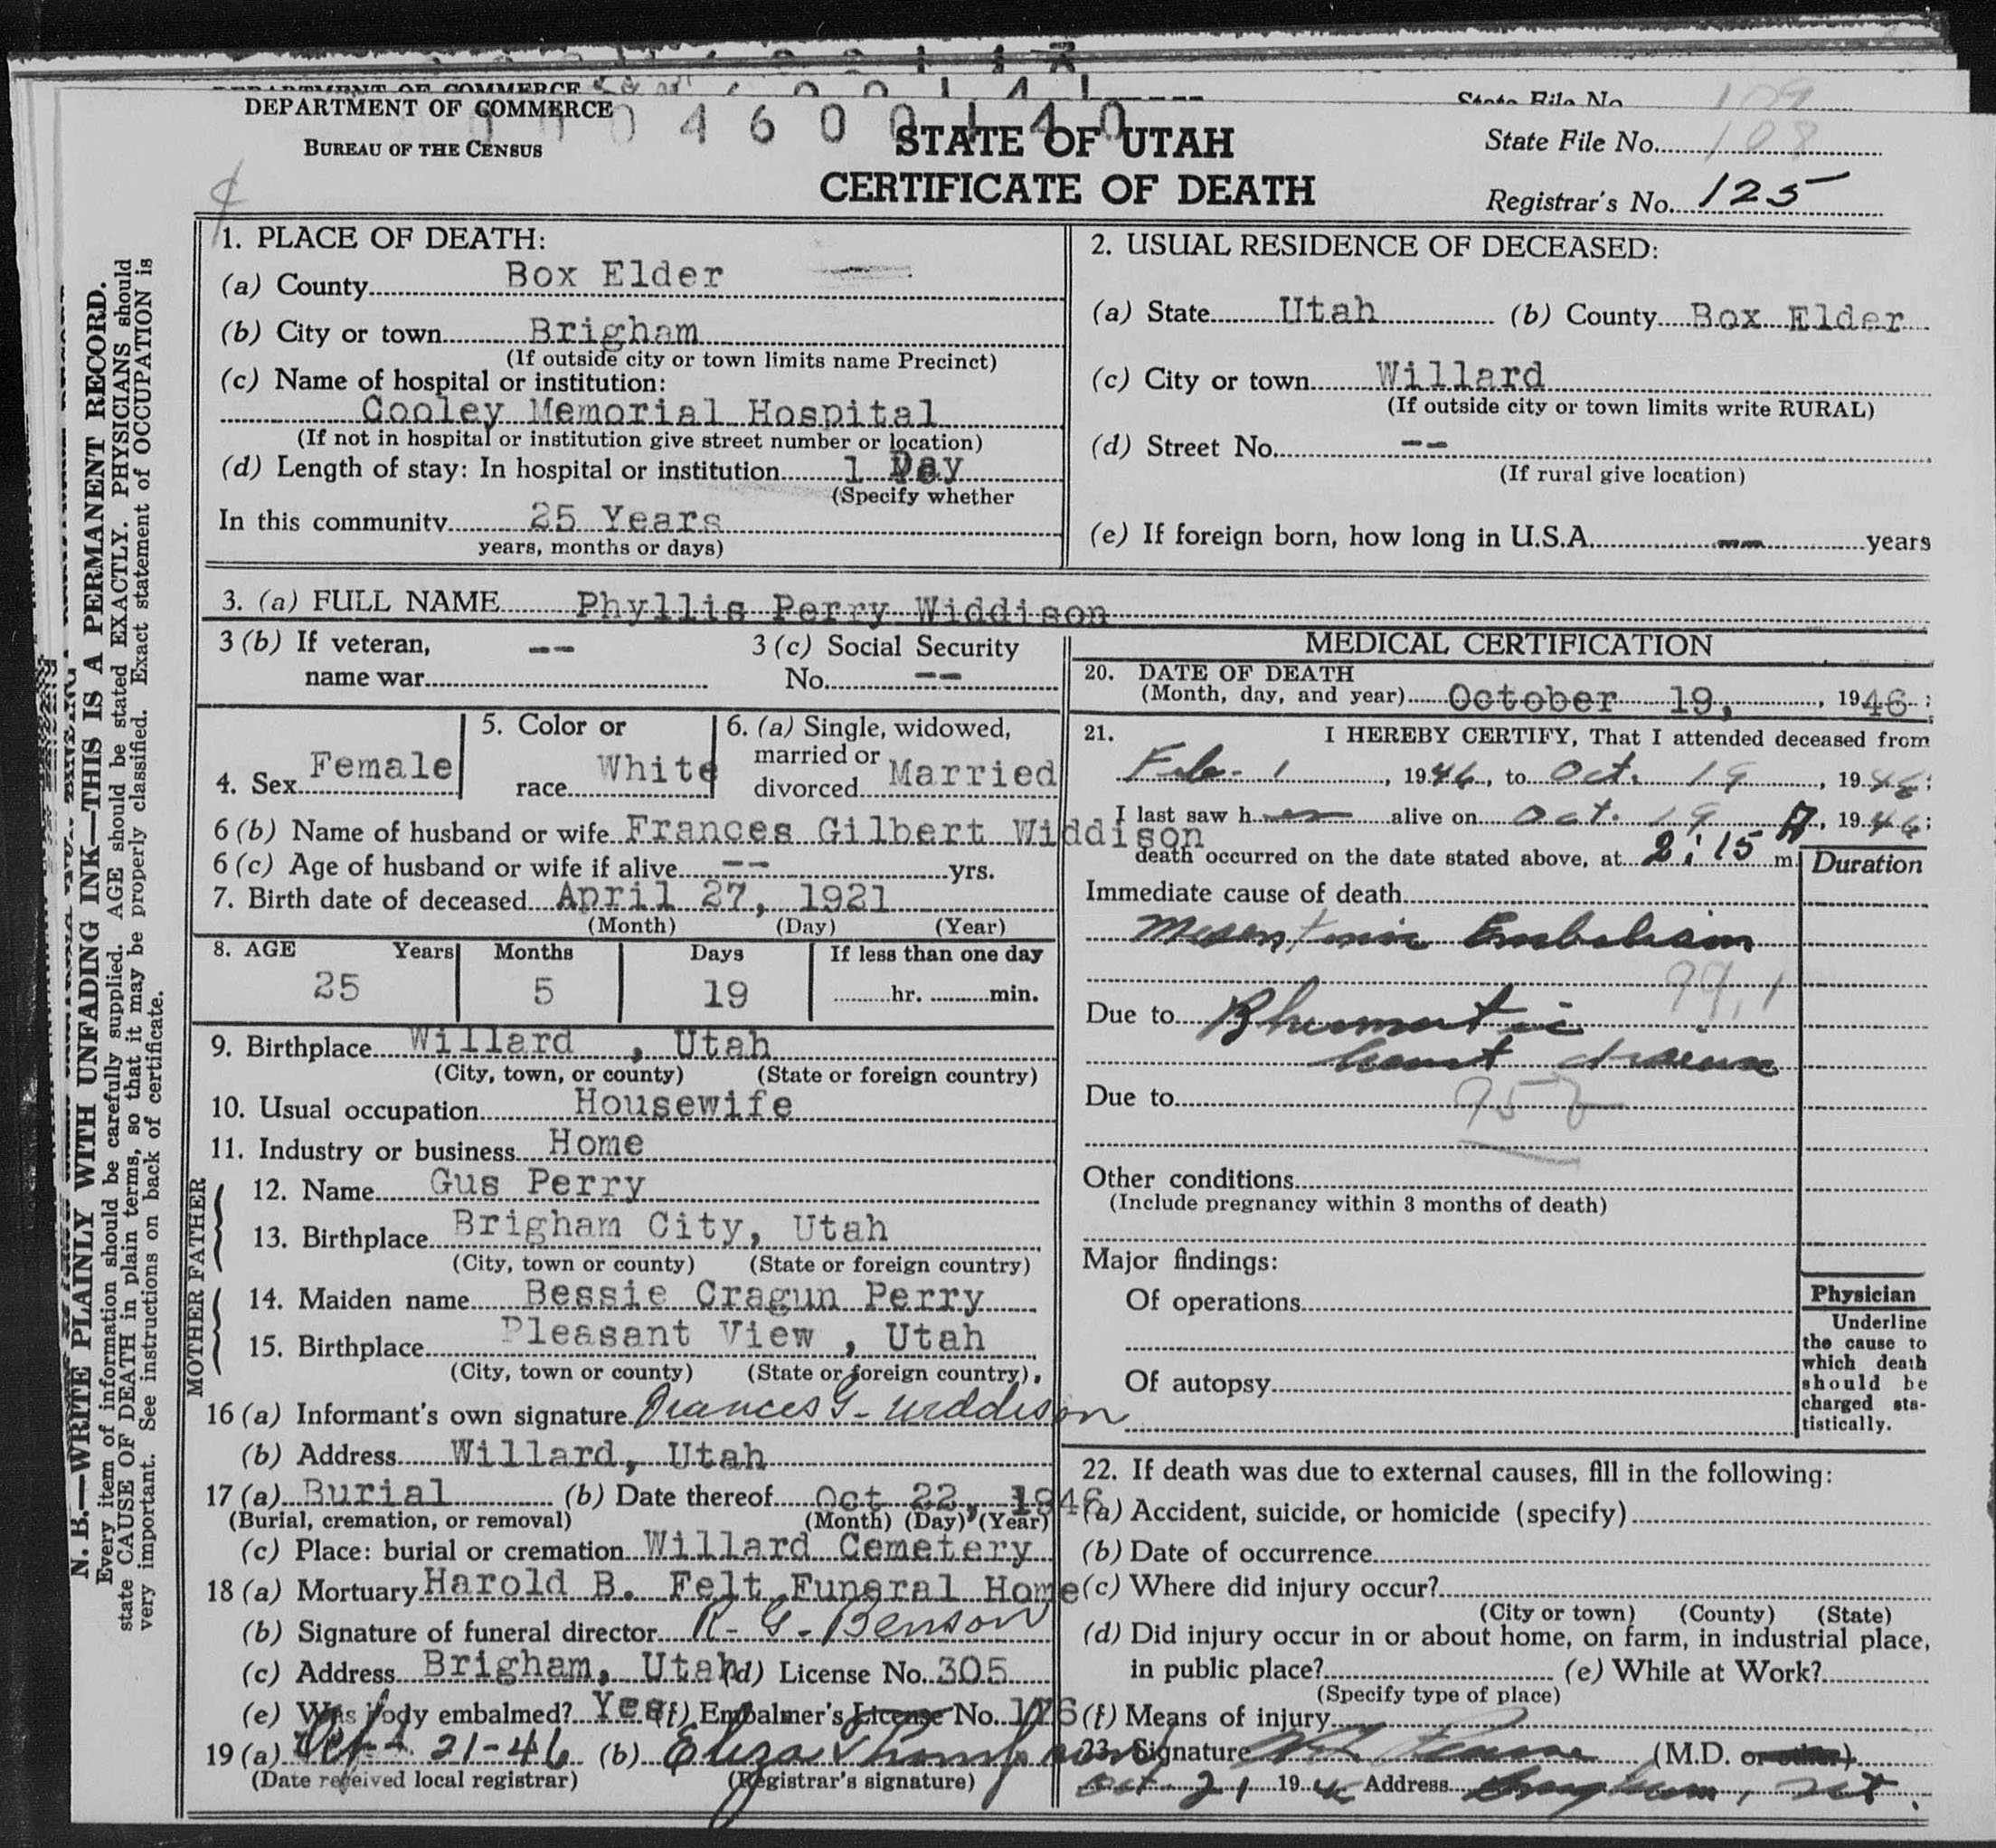 DEPARTMENT OF COMMERCE
State File No.
109
DEPARTMENT OF COMMERCE
BUREAU OF THE CENSUS
04600140
STATE OF UTAH
CERTIFICATE OF DEATH
State File No. 108
Registrar's No. 125
N. B.—WRITE PLAINLY WITH UNFADING INK—THIS IS A PERMANENT RECORD.
Every item of information should be carefully supplied. AGE should be stated EXACTLY. PHYSICIANS should
state CAUSE OF DEATH in plain terms, so that it may be properly classified. Exact statement of OCCUPATION is
very important. See instructions on back of certificate.
1. PLACE OF DEATH:
(a) County Box Elder
(b) City or town Brigham
(If outside city or town limits name Precinct)
(c) Name of hospital or institution:
Cooley Memorial Hospital
(If not in hospital or institution give street number or location)
(d) Length of stay: In hospital or institution 1 Day
(Specify whether
In this community 25 Years
years, months or days)
2. USUAL RESIDENCE OF DECEASED:
(a) State Utah (b) County Box Elder
(c) City or town Willard
(If outside city or town limits write RURAL)
(d) Street No. --
(If rural give location)
(e) If foreign born, how long in U.S.A. -- years
3. (a) FULL NAME Phyllis Perry Widdison
3 (b) If veteran, -- 3 (c) Social Security
name war No. --
4. Sex Female
5. Color or
race White
6. (a) Single, widowed,
married or
divorced Married
6 (b) Name of husband or wife Frances Gilbert Widdison
6 (c) Age of husband or wife if alive -- yrs.
7. Birth date of deceased April 27, 1921
(Month) (Day) (Year)
8. AGE Years Months Days If less than one day
25 5 19 hr. min.
9. Birthplace Willard , Utah
(City, town, or county) (State or foreign country)
10. Usual occupation Housewife
11. Industry or business Home
FATHER
12. Name Gus Perry
13. Birthplace Brigham City, Utah
(City, town or county) (State or foreign country)
MOTHER
14. Maiden name Bessie Cragun Perry
15. Birthplace Pleasant View , Utah
(City, town or county) (State or foreign country)
16 (a) Informant's own signature Frances G. Widdison
(b) Address Willard, Utah
17 (a) Burial (b) Date thereof Oct 22, 1946
(Burial, cremation, or removal) (Month) (Day) (Year)
(c) Place: burial or cremation Willard Cemetery
18 (a) Mortuary Harold B. Felt Funeral Home
(b) Signature of funeral director R. G. Benson
(c) Address Brigham, Utah (d) License No. 305
(e) Was body embalmed? Yes (f) Embalmer's License No. 176
19 (a) Oct 21-46 (b) Eliza Thompson
(Date received local registrar) (Registrar's signature)
MEDICAL CERTIFICATION
20. DATE OF DEATH
(Month, day, and year) October 19, , 1946 ;
21. I HEREBY CERTIFY, That I attended deceased from
Feb. 1 , 1946, to Oct. 19 , 1946;
I last saw h er alive on Oct. 19 , 1946;
death occurred on the date stated above, at 2:15 A m.
Duration
Immediate cause of death
Mesenteric Embolism
99.1
Due to Rheumatic
heart disease
Due to 95
Other conditions
(Include pregnancy within 3 months of death)
Major findings:
Of operations
Of autopsy
Physician
Underline
the cause to
which death
should be
charged sta-
tistically.
22. If death was due to external causes, fill in the following:
(a) Accident, suicide, or homicide (specify)
(b) Date of occurrence
(c) Where did injury occur?
(City or town) (County) (State)
(d) Did injury occur in or about home, on farm, in industrial place,
in public place? (e) While at Work?
(Specify type of place)
(f) Means of injury
23. Signature (M.D. or other)
Oct 21, 1946 Address Brigham, Ut.